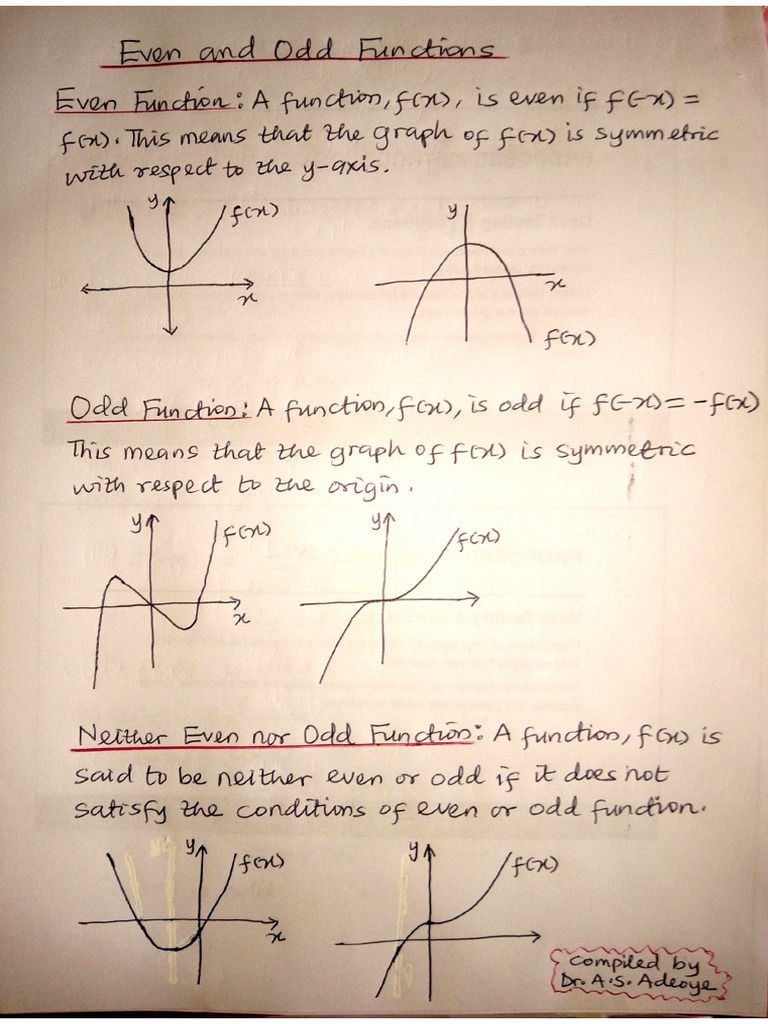 Even and Odd Functions
Even Function: A function, f(x), is even if f(-x) =
f(x). This means that the graph of f(x) is symmetric
with respect to the y-axis.
y f(x)
x
y
x
f(x)
Odd Function: A function, f(x), is odd if f(-x) = -f(x)
This means that the graph of f(x) is symmetric
with respect to the origin.
y f(x)
x
y f(x)
Neither Even nor Odd Function: A function, f(x) is
said to be neither even or odd if it does not
satisfy the conditions of even or odd function.
y f(x)
x
y f(x)
Compiled by
Dr. A.S. Adeoye